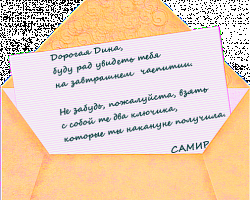 Дорогая Дина,
буду рад увидеть тебя
на завтрашнем чаепитии.
Не забудь, пожалуйста, взять
с собой те два ключика,
которые ты накануне получила.
САМИР